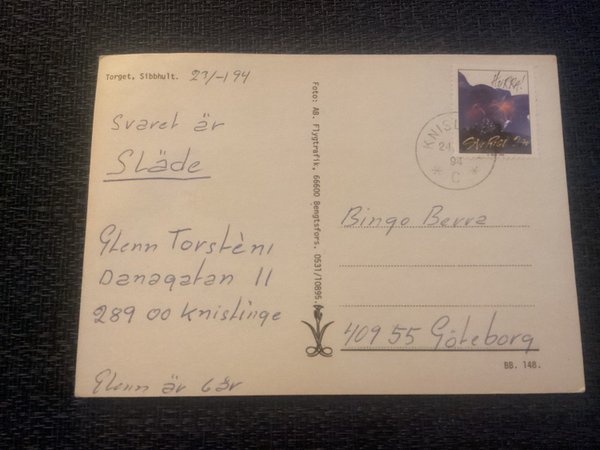 Torget, Sibbhult. 23/-1 94
Svaret är
Släde
Glenn Torstèni
Danagatan 11
289 00 Knislinge
Glenn är 6 år
Foto: AB. Flygtrafik, 66600 Bengtsfors. 0531/10895.
HURRA!
KNISL
24
94
* C *
Bingo Berra
409 55 Göteborg
BB. 148.